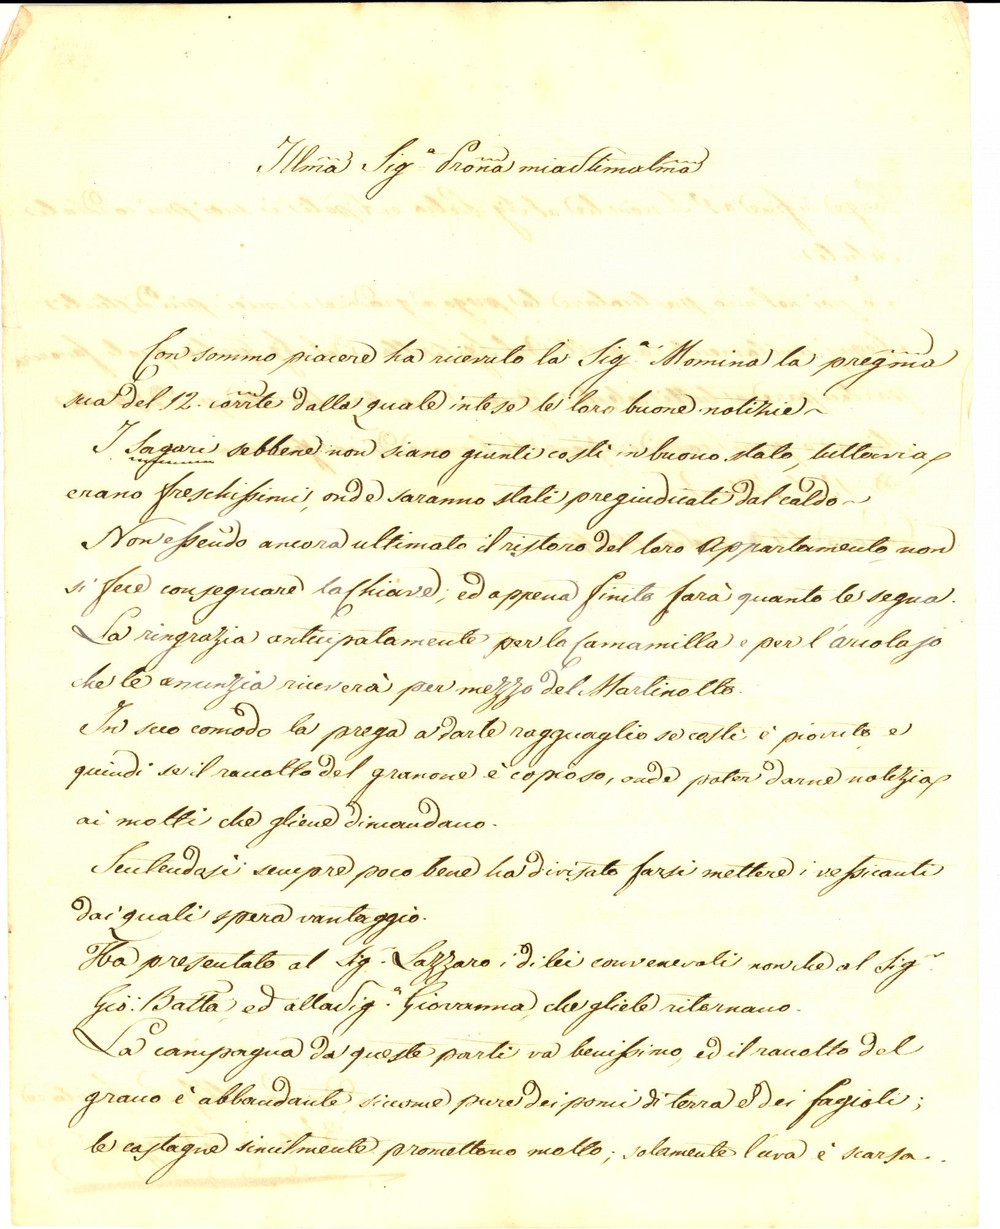 Illma Sig.a Prona mia Stimatma
Con sommo piacere ha ricevuto la Sig.a Momina la pregma
sua del 12. corrte dalla quale intese le loro buone notizie~
I Sagari sebbene non siano giunti costì in buono stato, tuttavia
erano freschissimi, onde saranno stati pregiudicati dal caldo~
Non essendo ancora ultimato il ristoro del loro Appartamento, non
si fece conseguare la Chiave; ed appena finito farà quanto le segna.
La ringrazia anticipatamente per la Camamilla e per l'arcolajo
che le anunzia riceverà per mezzo del Martinotto.
In suo comodo la prega a darle ragguaglio se costì è piovuto, e
quindi se il racolto del granone è copioso, onde poter darne notizia
ai molti che gliene dimandano.
Sentendosi sempre poco bene ha divisato farsi mettere i vessicanti
dai quali spera vantaggio.
Ha presentato al Sig.r Lazzaro i di lei convenevoli non che al Sig.r
Gio: Batta, ed alla Sig.a Giovanna, che gliele ritornano.
La campagna da queste parti va benissimo, ed il racolto del
grano è abbandante, siccome pure dei pomi di terra e dei fagioli;
le castagne similmente promettono molto; solamente l'uva è scarsa.